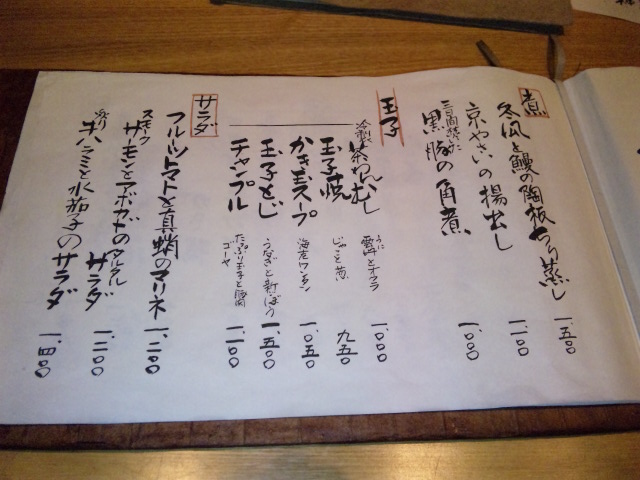 煮
冬瓜と鰻の陶板やわ蒸し 一、五〇〇
京やさいの揚出し 一、一〇〇
三日間煮た
黒豚の角煮 一、〇〇〇
玉子
冷製茶わんむし うに 雲丹とオクラ 一、〇〇〇
玉子焼 じゃこと葱 九五〇
かき玉スープ 海老ワンタン 一、〇五〇
玉子とじ うなぎと新ごぼう 一、五〇〇
チャンプル たっぷり玉子と豚 ゴーヤ 一、一〇〇
サラダ
フルーツトマトと真蛸のマリネ 一、二〇〇
スモークサーモンとアボカドのタルタルサラダ 一、二〇〇
炙りハラミと水茄子のサラダ 一、四〇〇